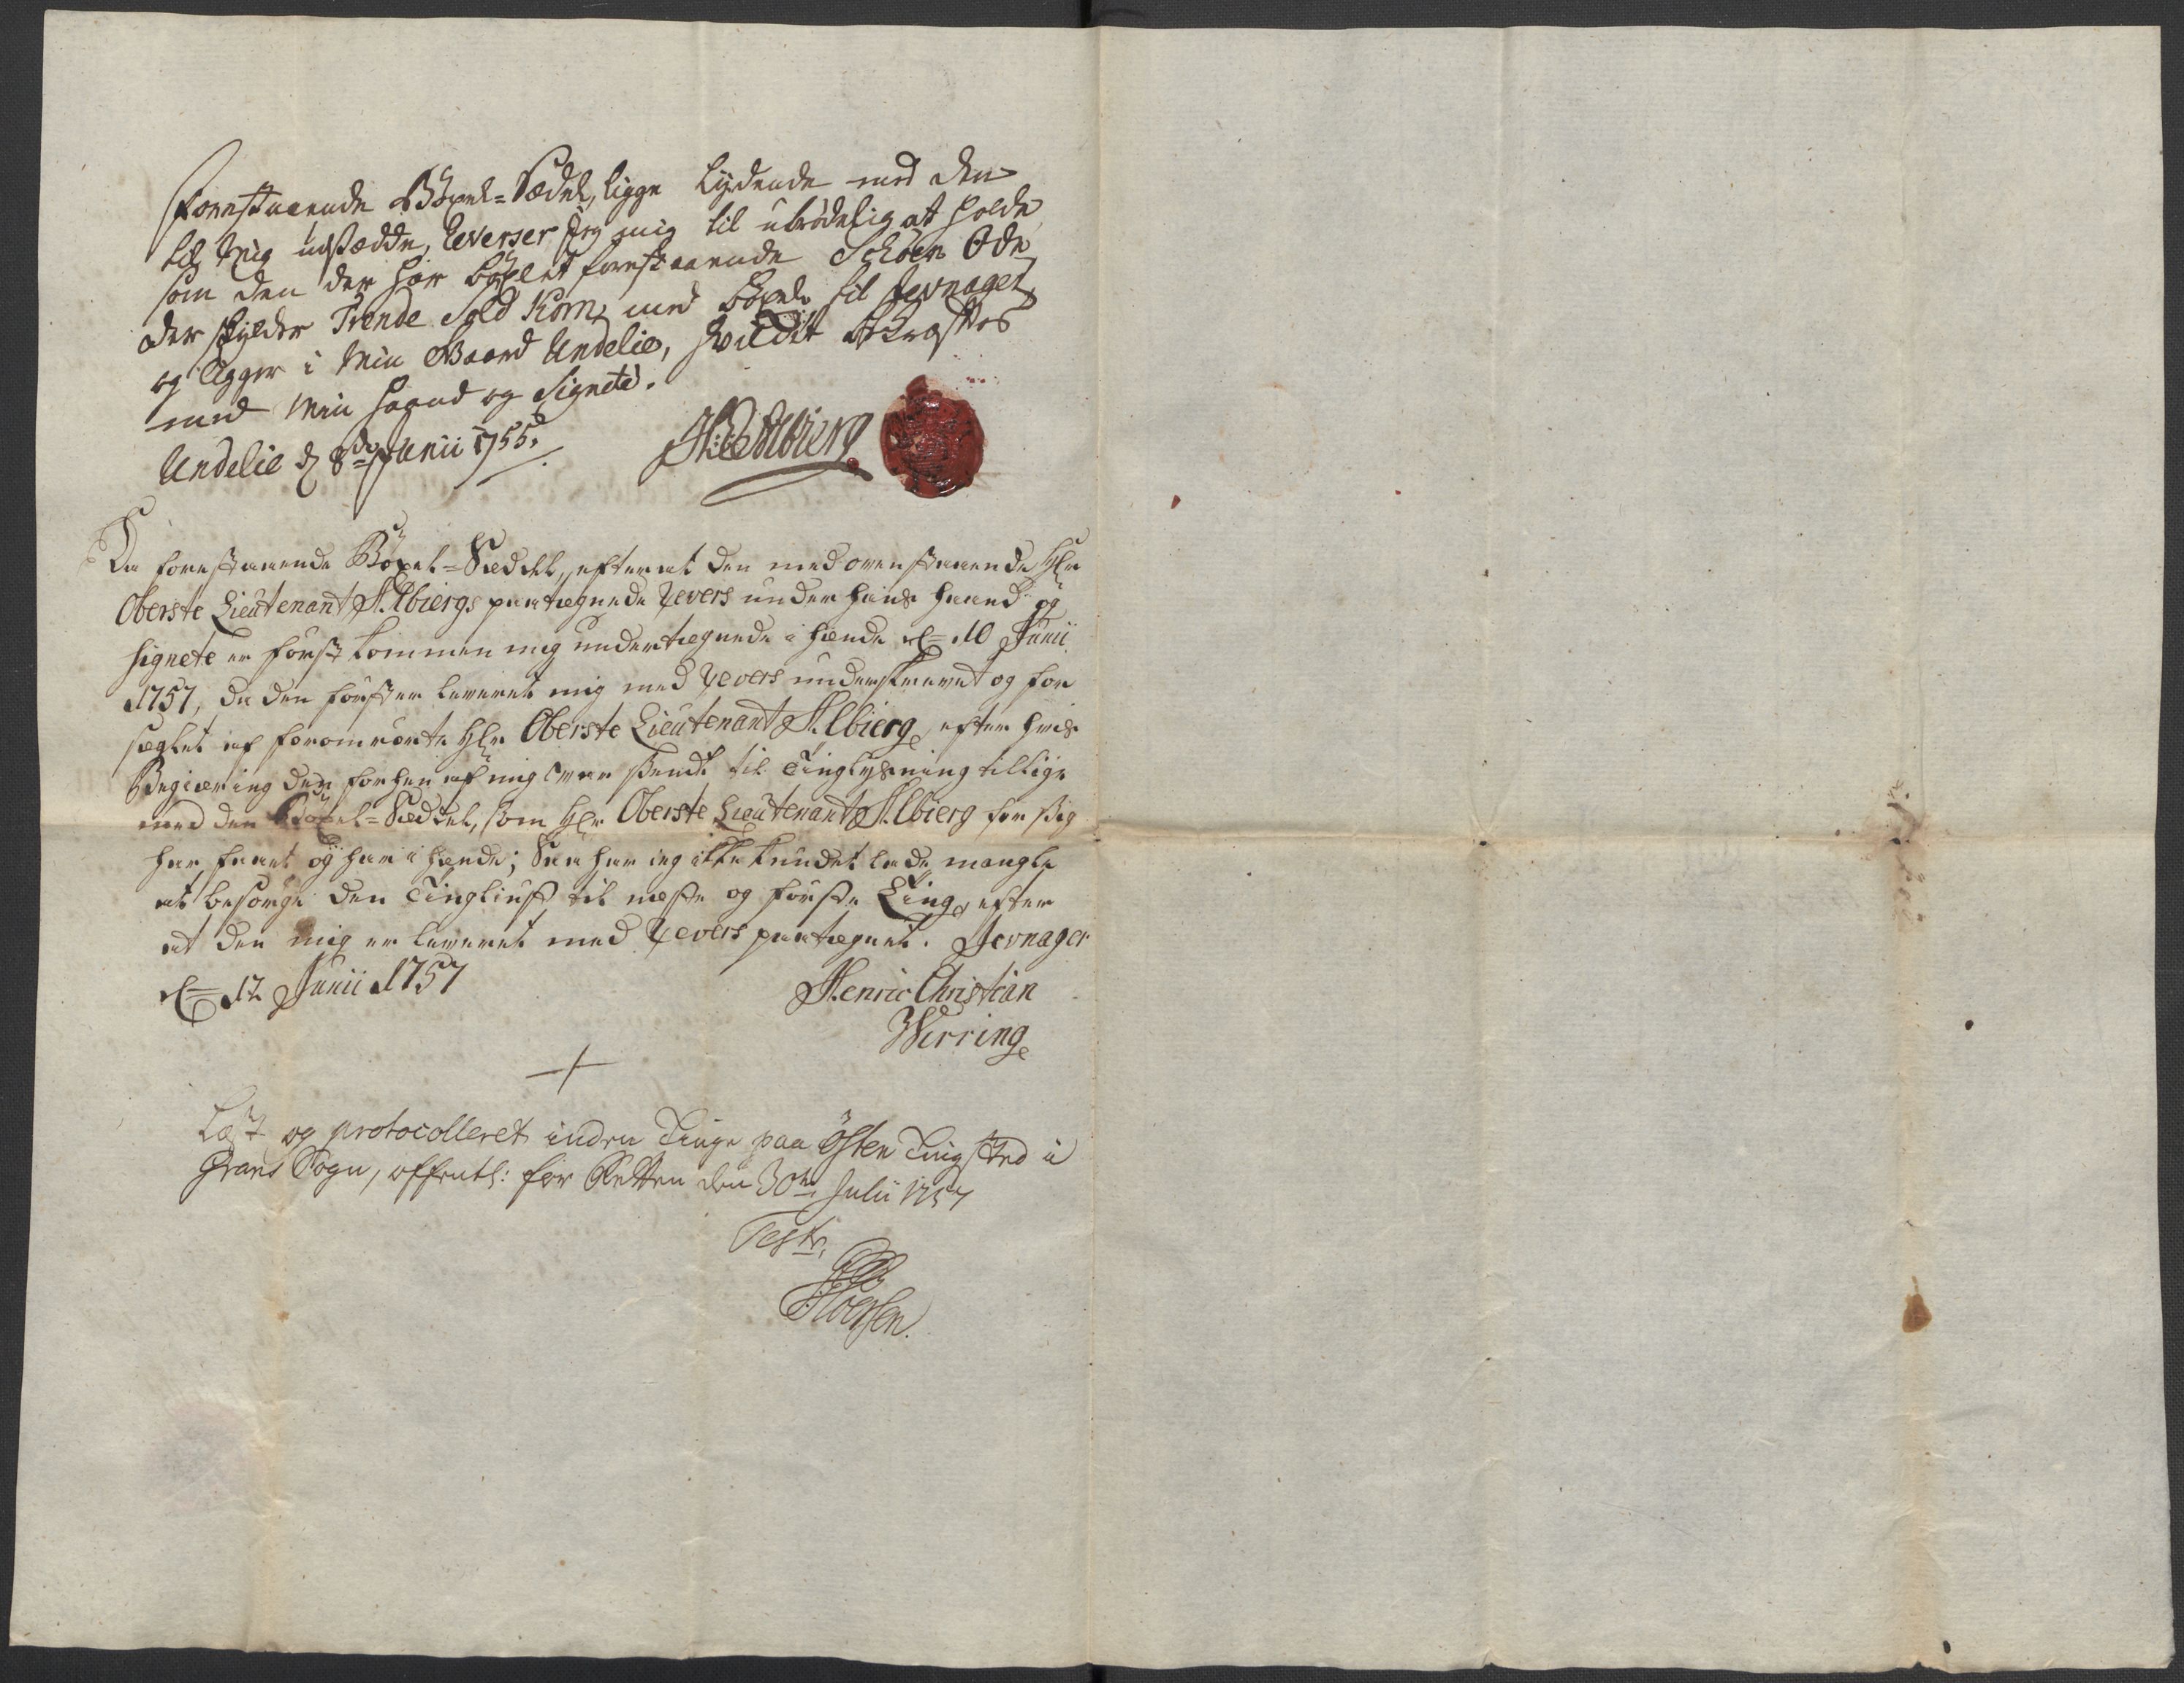 Forestaaende Böxel-Sedel, ligge lydende med den
til Mig udstædde, Reverser Jeg mig til ubrødelig at holde
som den der har böxlet forestaaende Schöen Öde
der skylder Trende Sold Korn, med böxel til Jevnager
og ligger i Min Gaard Undelie, hvilket bekræftes
med Min Haand og Signete.
Undelie d 8de Junii 1755.
Da forestaaende Böxel-Seddel, efter at den med ovenstaaende Hr
Oberste Lieutenant H. Elbiergs paategnede Revers under hans Haand og
Signete er først kommen mig undertegnede i hænde d. 10 Junii
1757, da den først er leveret mig med Revers underskrevet og for
seglet af forommelte Hr Oberste Lieutenant H. Elbierg, efter hvis
Begiering den forhen af mig var sendt til Tinglysning tillige
med den Böxel-Seddel, som Hr Oberste Lieutenant H. Elbierg for sig
har faaet og har i hænde; Saa har ieg ikke kundet lade mangle
at besørge den Tingliust til næste og første Ting, efter
at den mig er leveret med Revers paategnet. Jevnager
d. 12 Junii 1757
Henric Christian
Werring
Læst og protocolleret inden Tinge paa Østen Tingsted i
Grans Sogn, offentl: for Retten den 30te Julii 1757
Test.